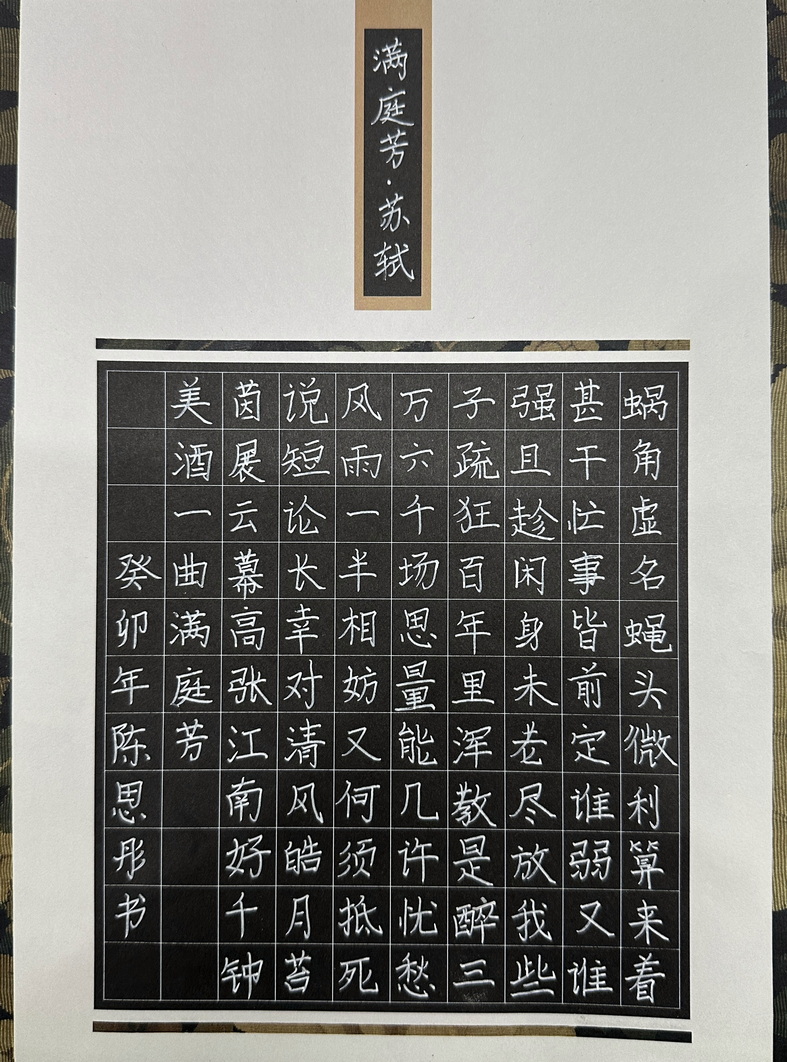 满庭芳·苏轼
蜗角虚名蝇头微利算来着
甚干忙事皆前定谁弱又谁
强且趁闲身未老尽放我些
子疏狂百年里浑教是醉三
万六千场思量能几许忧愁
风雨一半相妨又何须抵死
说短论长幸对清风皓月苔
茵展云幕高张江南好千钟
美酒一曲满庭芳
癸卯年陈思彤书